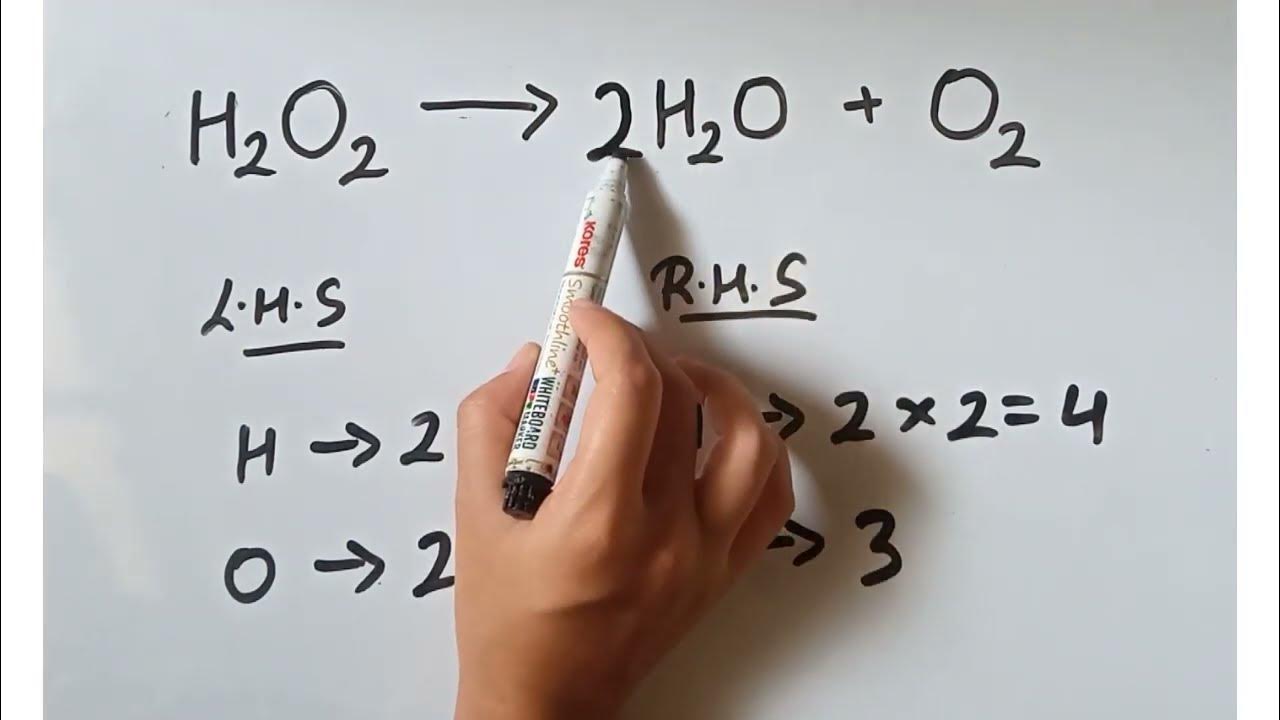 H₂O₂ → 2H₂O + O₂
L.H.S R.H.S
H → 2 → 2 × 2 = 4
O → 2 → 3
kores Smoothline+ WHITEBOARD MARKER